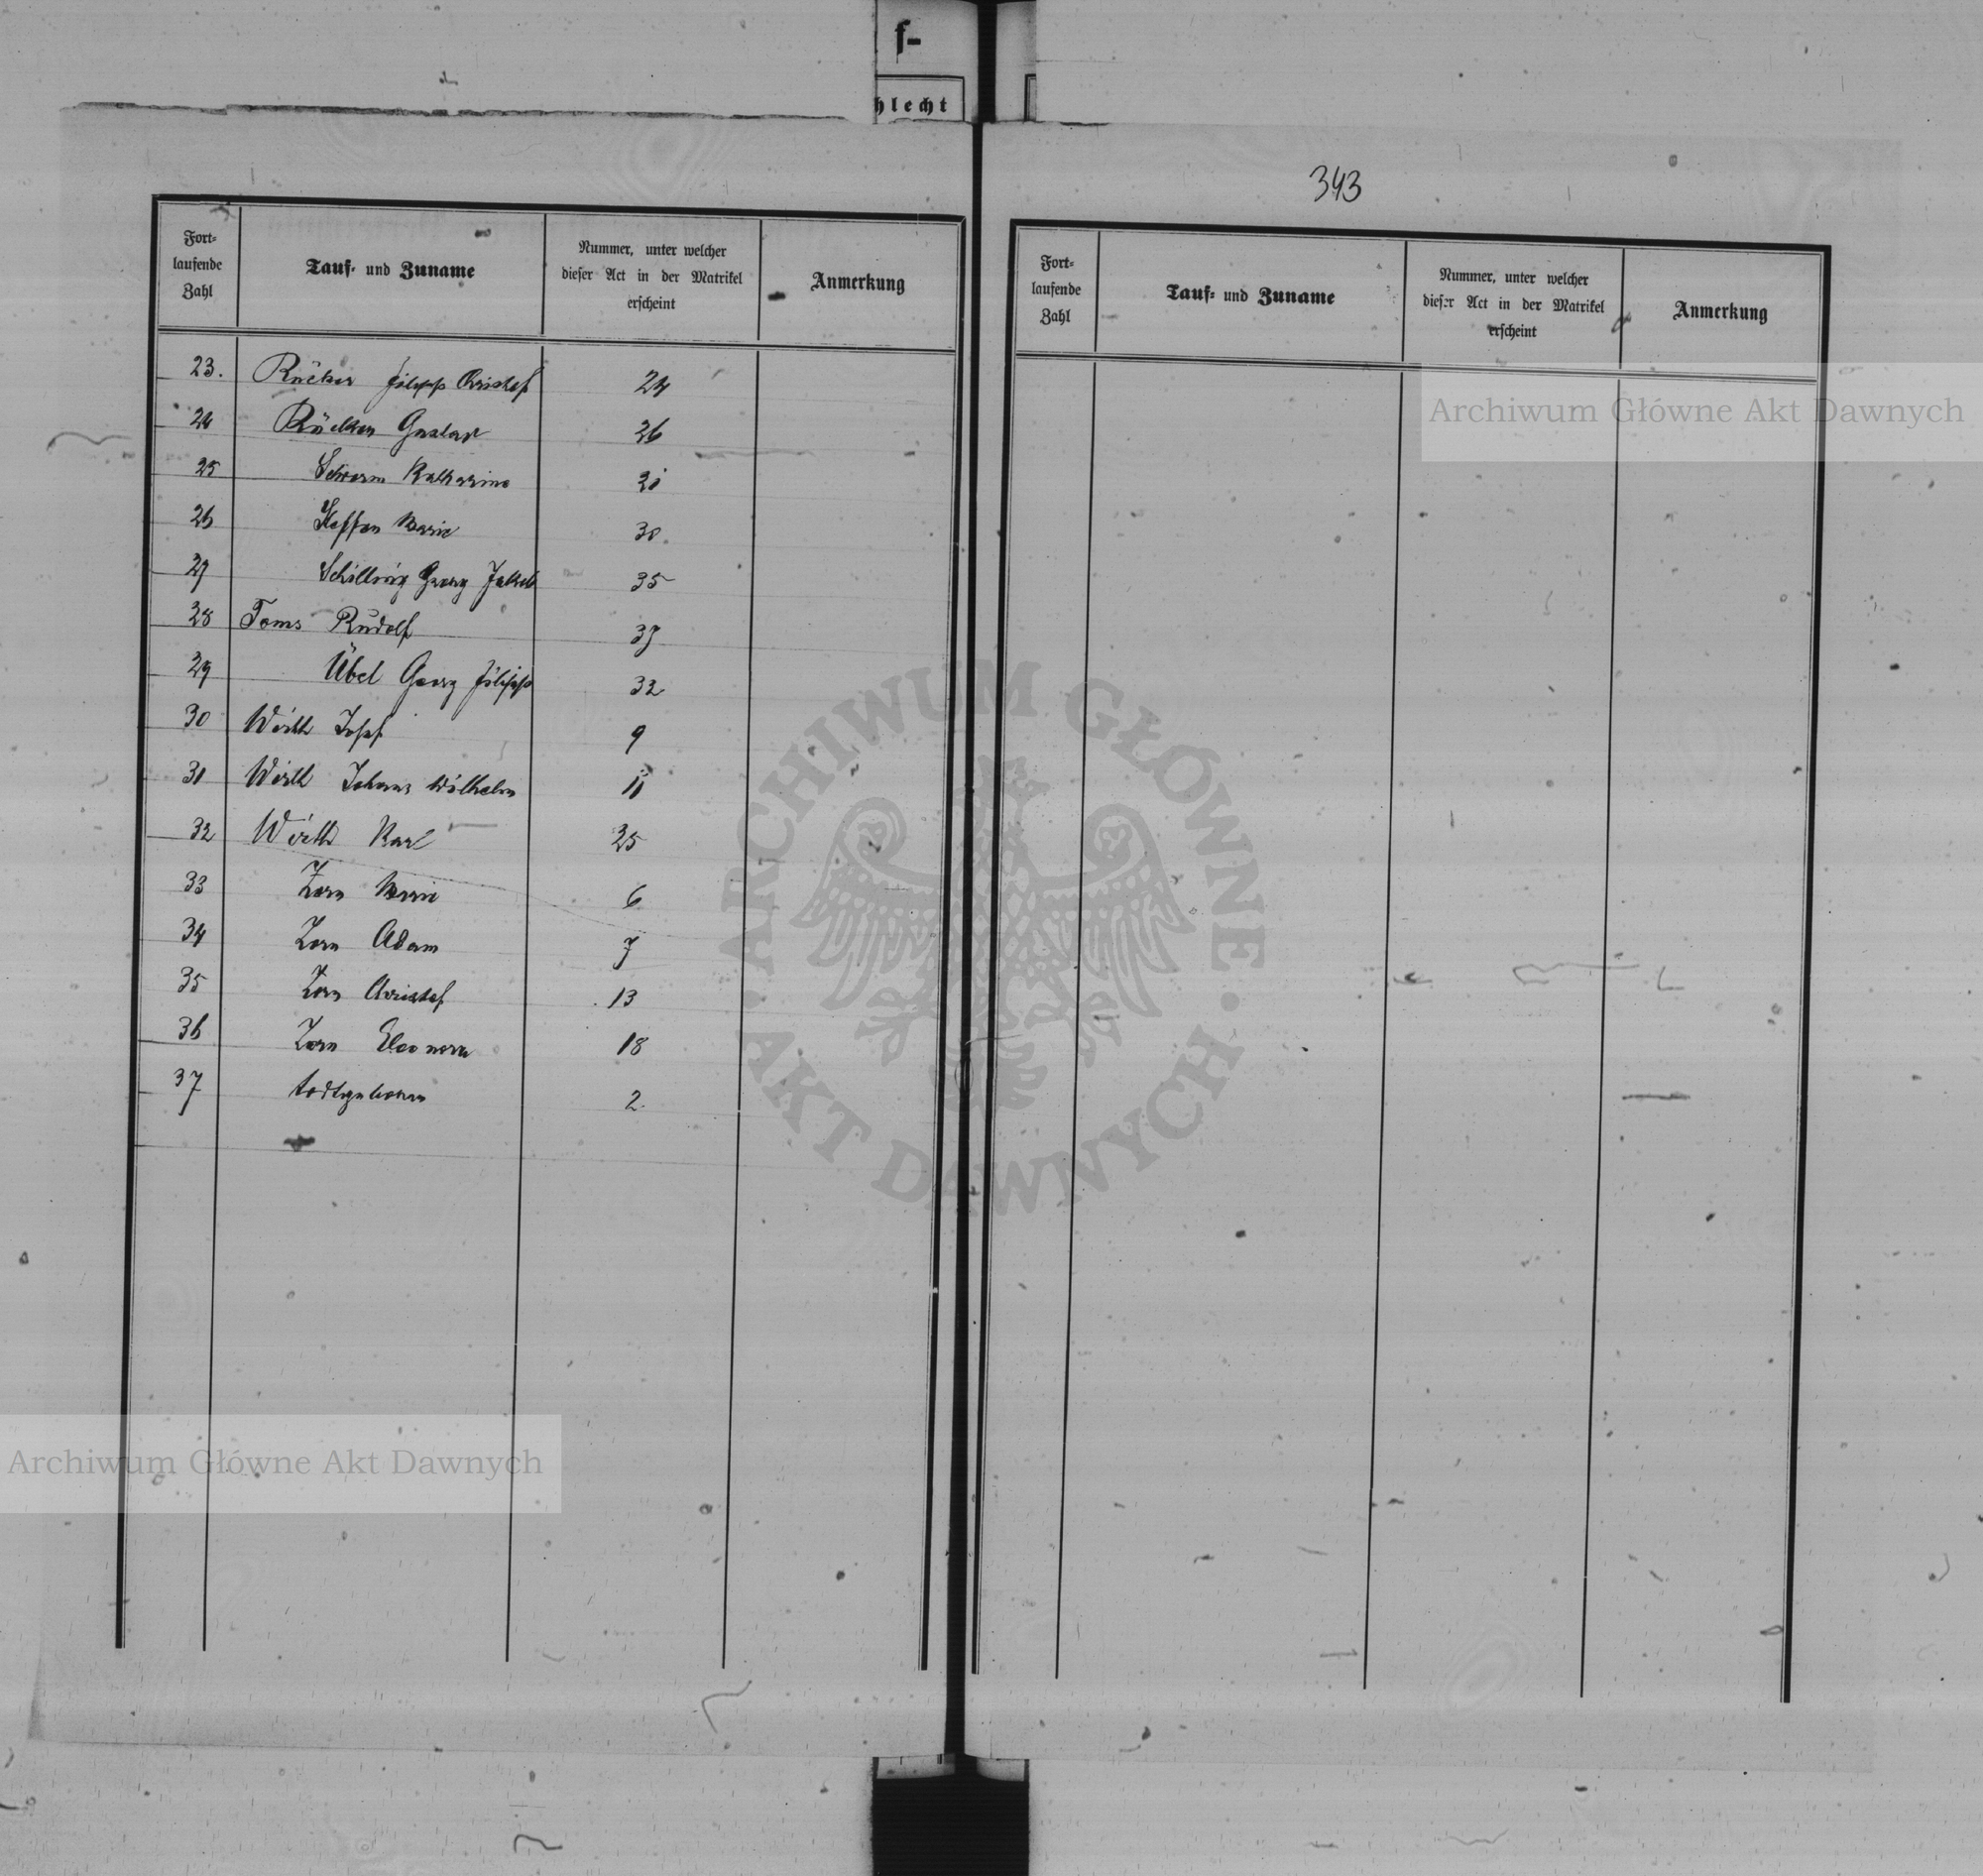 f-
hlecht
343
Fort-
laufende
Zahl
Tauf- und Zuname
Nummer, unter welcher
dieser Act in der Matrikel
erscheint
Anmerkung
23. Rücker Filipp Christof 24
24 Rücker Gustav 26
25 Schwarm Katharina
26 Steffan Marie 30
27 Schilling Georg Jakob 35
28 Toms Rudolf 37
29 Übel Georg Filipp 32
30 Wirth Josef 9
31 Wirth Johann Wilhelm 11
32 Wirth Karl 25
33 Zorn Marie 6
34 Zorn Adam 7
35 Zorn Christof 13
36 Zorn Eleonora 18
37 todtgeboren 2
Fort-
laufende
Zahl
Tauf- und Zuname
Nummer, unter welcher
dieser Act in der Matrikel
erscheint
Anmerkung
Archiwum Główne Akt Dawnych
ARCHIWUM GŁÓWNE
AKT DAWNYCH
Archiwum Główne Akt Dawnych